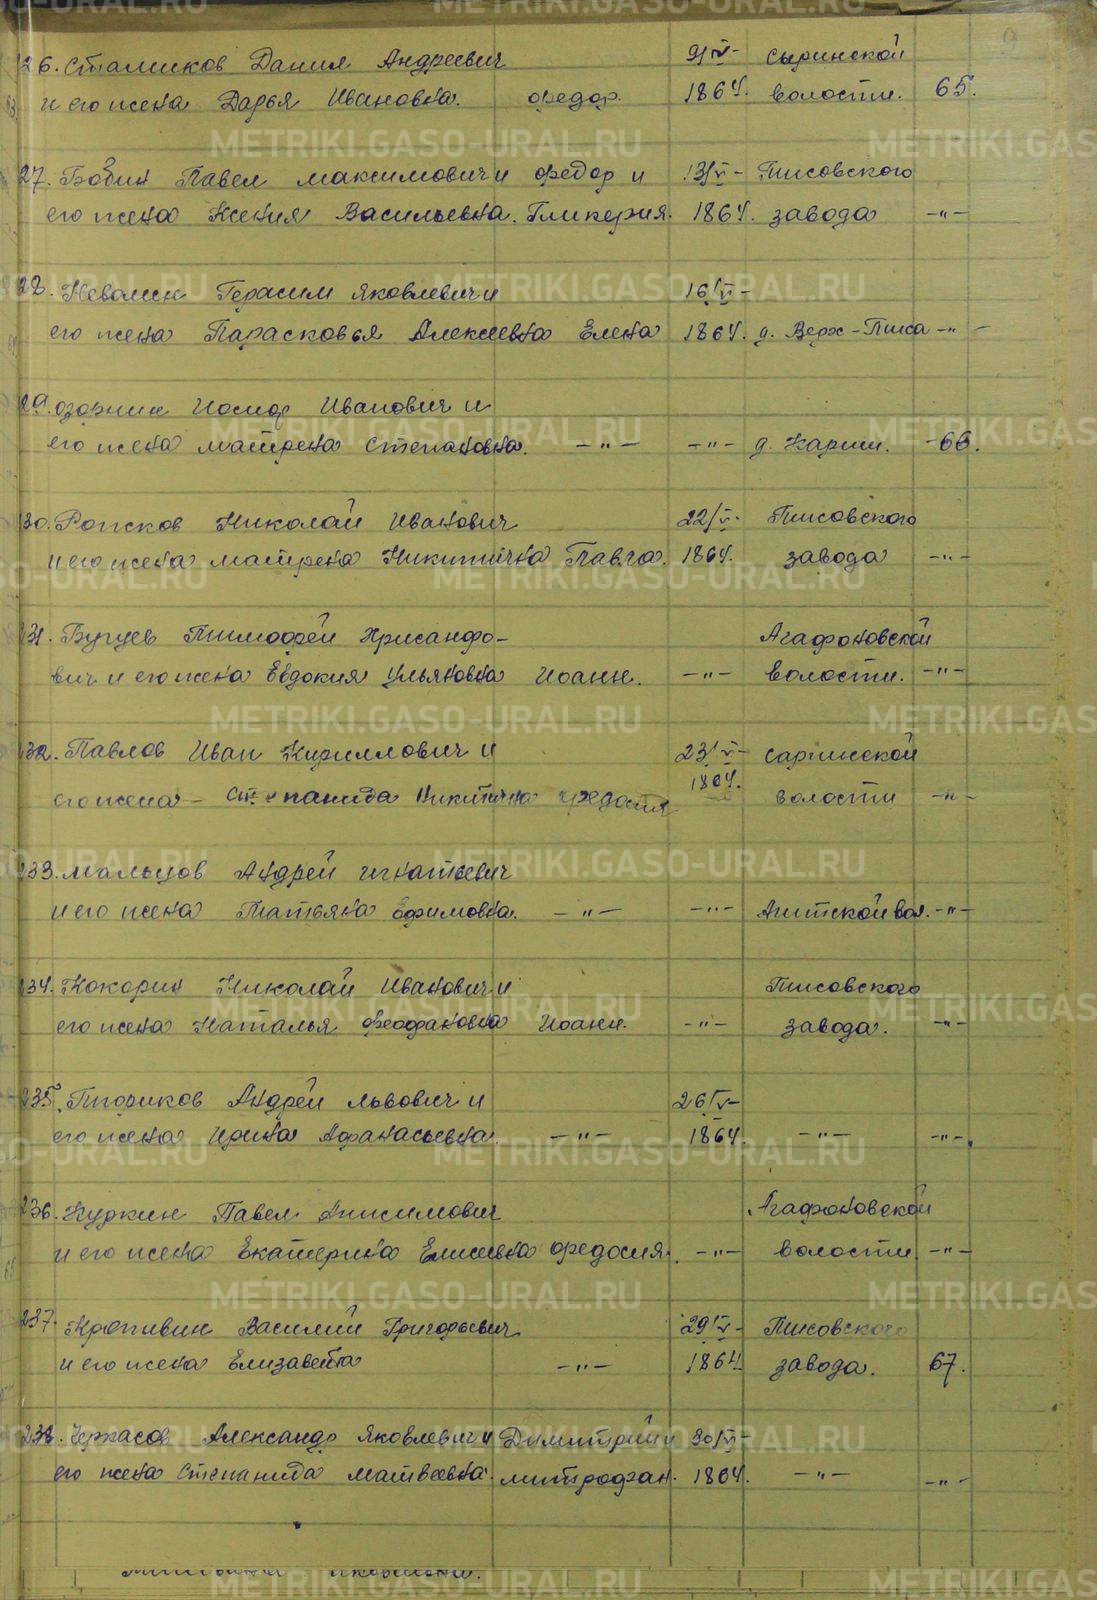 9
126. Сталиков Данил Андреевич 9/V- Сыринской
и его жена Дарья Ивановна. Федор. 1864. волости. 65.
127. Бобин Павел Максимович и Федор и 13/V- Тисовского
его жена Ксения Васильевна. Гликерия. 1864. завода -"-
128. Неволин Герасим Яковлевич и 16/V-
его жена Парасковья Алексеевна Елена 1864. д. Верх-Тиса -"-
129. Озорнин Иосиф Иванович и
его жена Матрена Степановна. -"- -"- д. Карши. -66.
130. Ропсков Николай Иванович 22/V- Тисовского
и его жена Матрена Никитична Павла. 1864. завода -"-
131. Бугуев Тимофей Хрисанфо-
вич и его жена Евдокия Ульяновна Иоанн. -"- Агафоновской волости. -"-
132. Павлов Иван Кириллович и 23/V- Саргинской
его жена- Степанида Никитична Федосия 1864. волости -"-
233. Мальцов Андрей Игнатьевич
и его жена Татьяна Ефимовна. -"- -"- Ачитской вол. -"-
134. Кокорин Николай Иванович и Тисовского
его жена Наталья Феофановна Иоанн. -"- завода. -"-
235. Тюриков Андрей Львович и 26/V-
его жена Ирина Афанасьевна. -"- 1864. -"- -"-
236. Куркин Павел Анисимович Агафоновской
и его жена Екатерина Елисеевна Федосия. -"- волости. -"-
237. Кропивин Василий Григорьевич 29/V- Тисовского
и его жена Елизавета -"- 1864 завода. 67.
238. Черкасов Александр Яковлевич и Димитрий и 30/V-
его жена Степанида Матвеевна. Митрофан. 1864. -"- -"-
METRIKI.GASO-URAL.RU